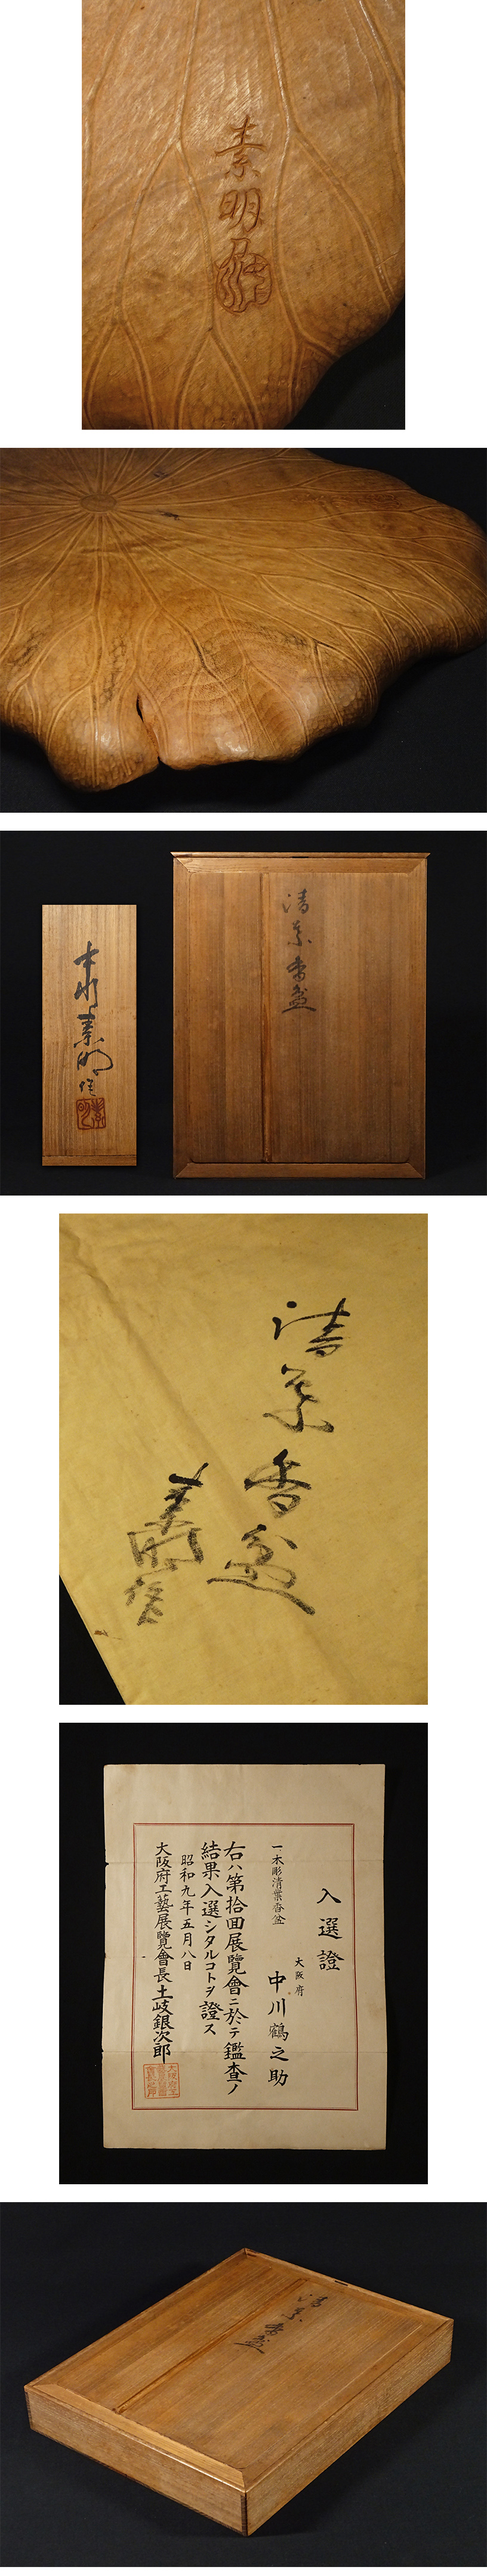 素明
中川素明作
素明
清葉香盆
清葉香盆
素明作
入選證
大阪府
中川鶴之助
一木彫清葉香盆
右ハ第拾回展覽會ニ於テ鑑査ノ
結果入選シタルコトヲ證ス
昭和九年五月八日
大阪府工藝展覽會長土岐銀次郎
清葉香盆